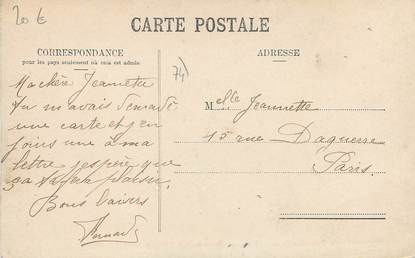 20 €
CARTE POSTALE
CORRESPONDANCE
pour les pays seulement où cela est admis.
ADRESSE
74)
Ma chère Jeanette
Tu m'avais demandé
une carte et j'en
joins une à ma
lettre j'espère que
ça te fera plaisir.
Bons baisers
Melle Jeannette
15 rue Daguerre
Paris.